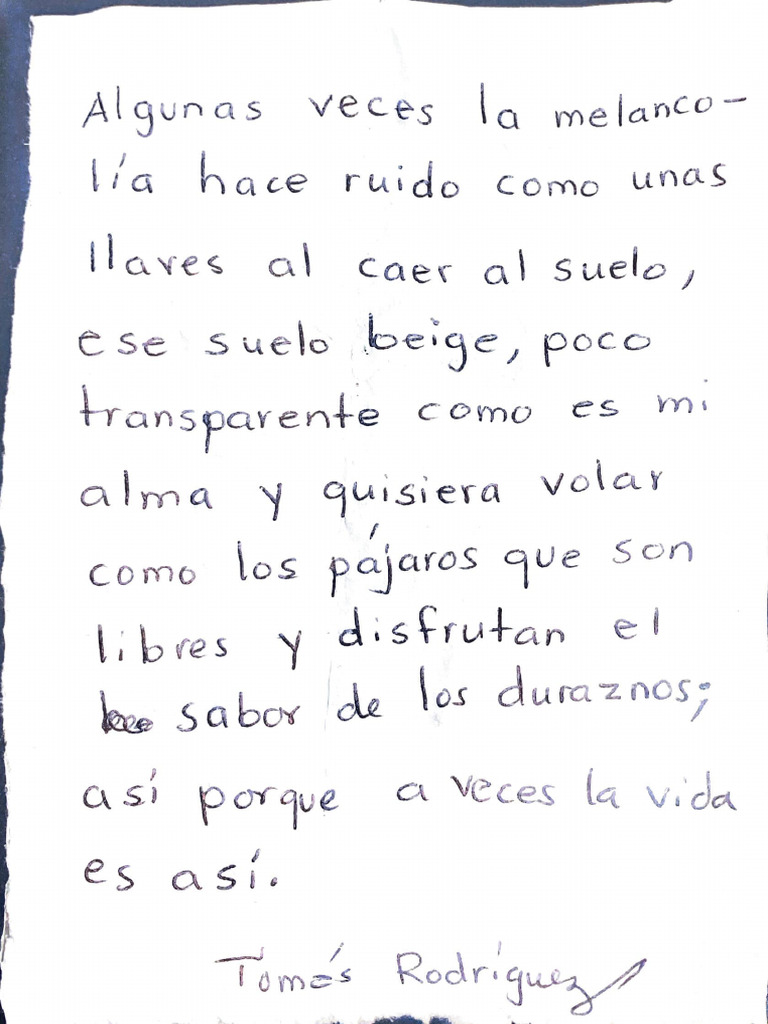 Algunas veces la melanco-
lía hace ruido como unas
llaves al caer al suelo,
ese suelo beige, poco
transparente como es mi
alma y quisiera volar
como los pájaros que son
libres y disfrutan el
sabor de los duraznos;
así porque a veces la vida
es así.
Tomás Rodríguez